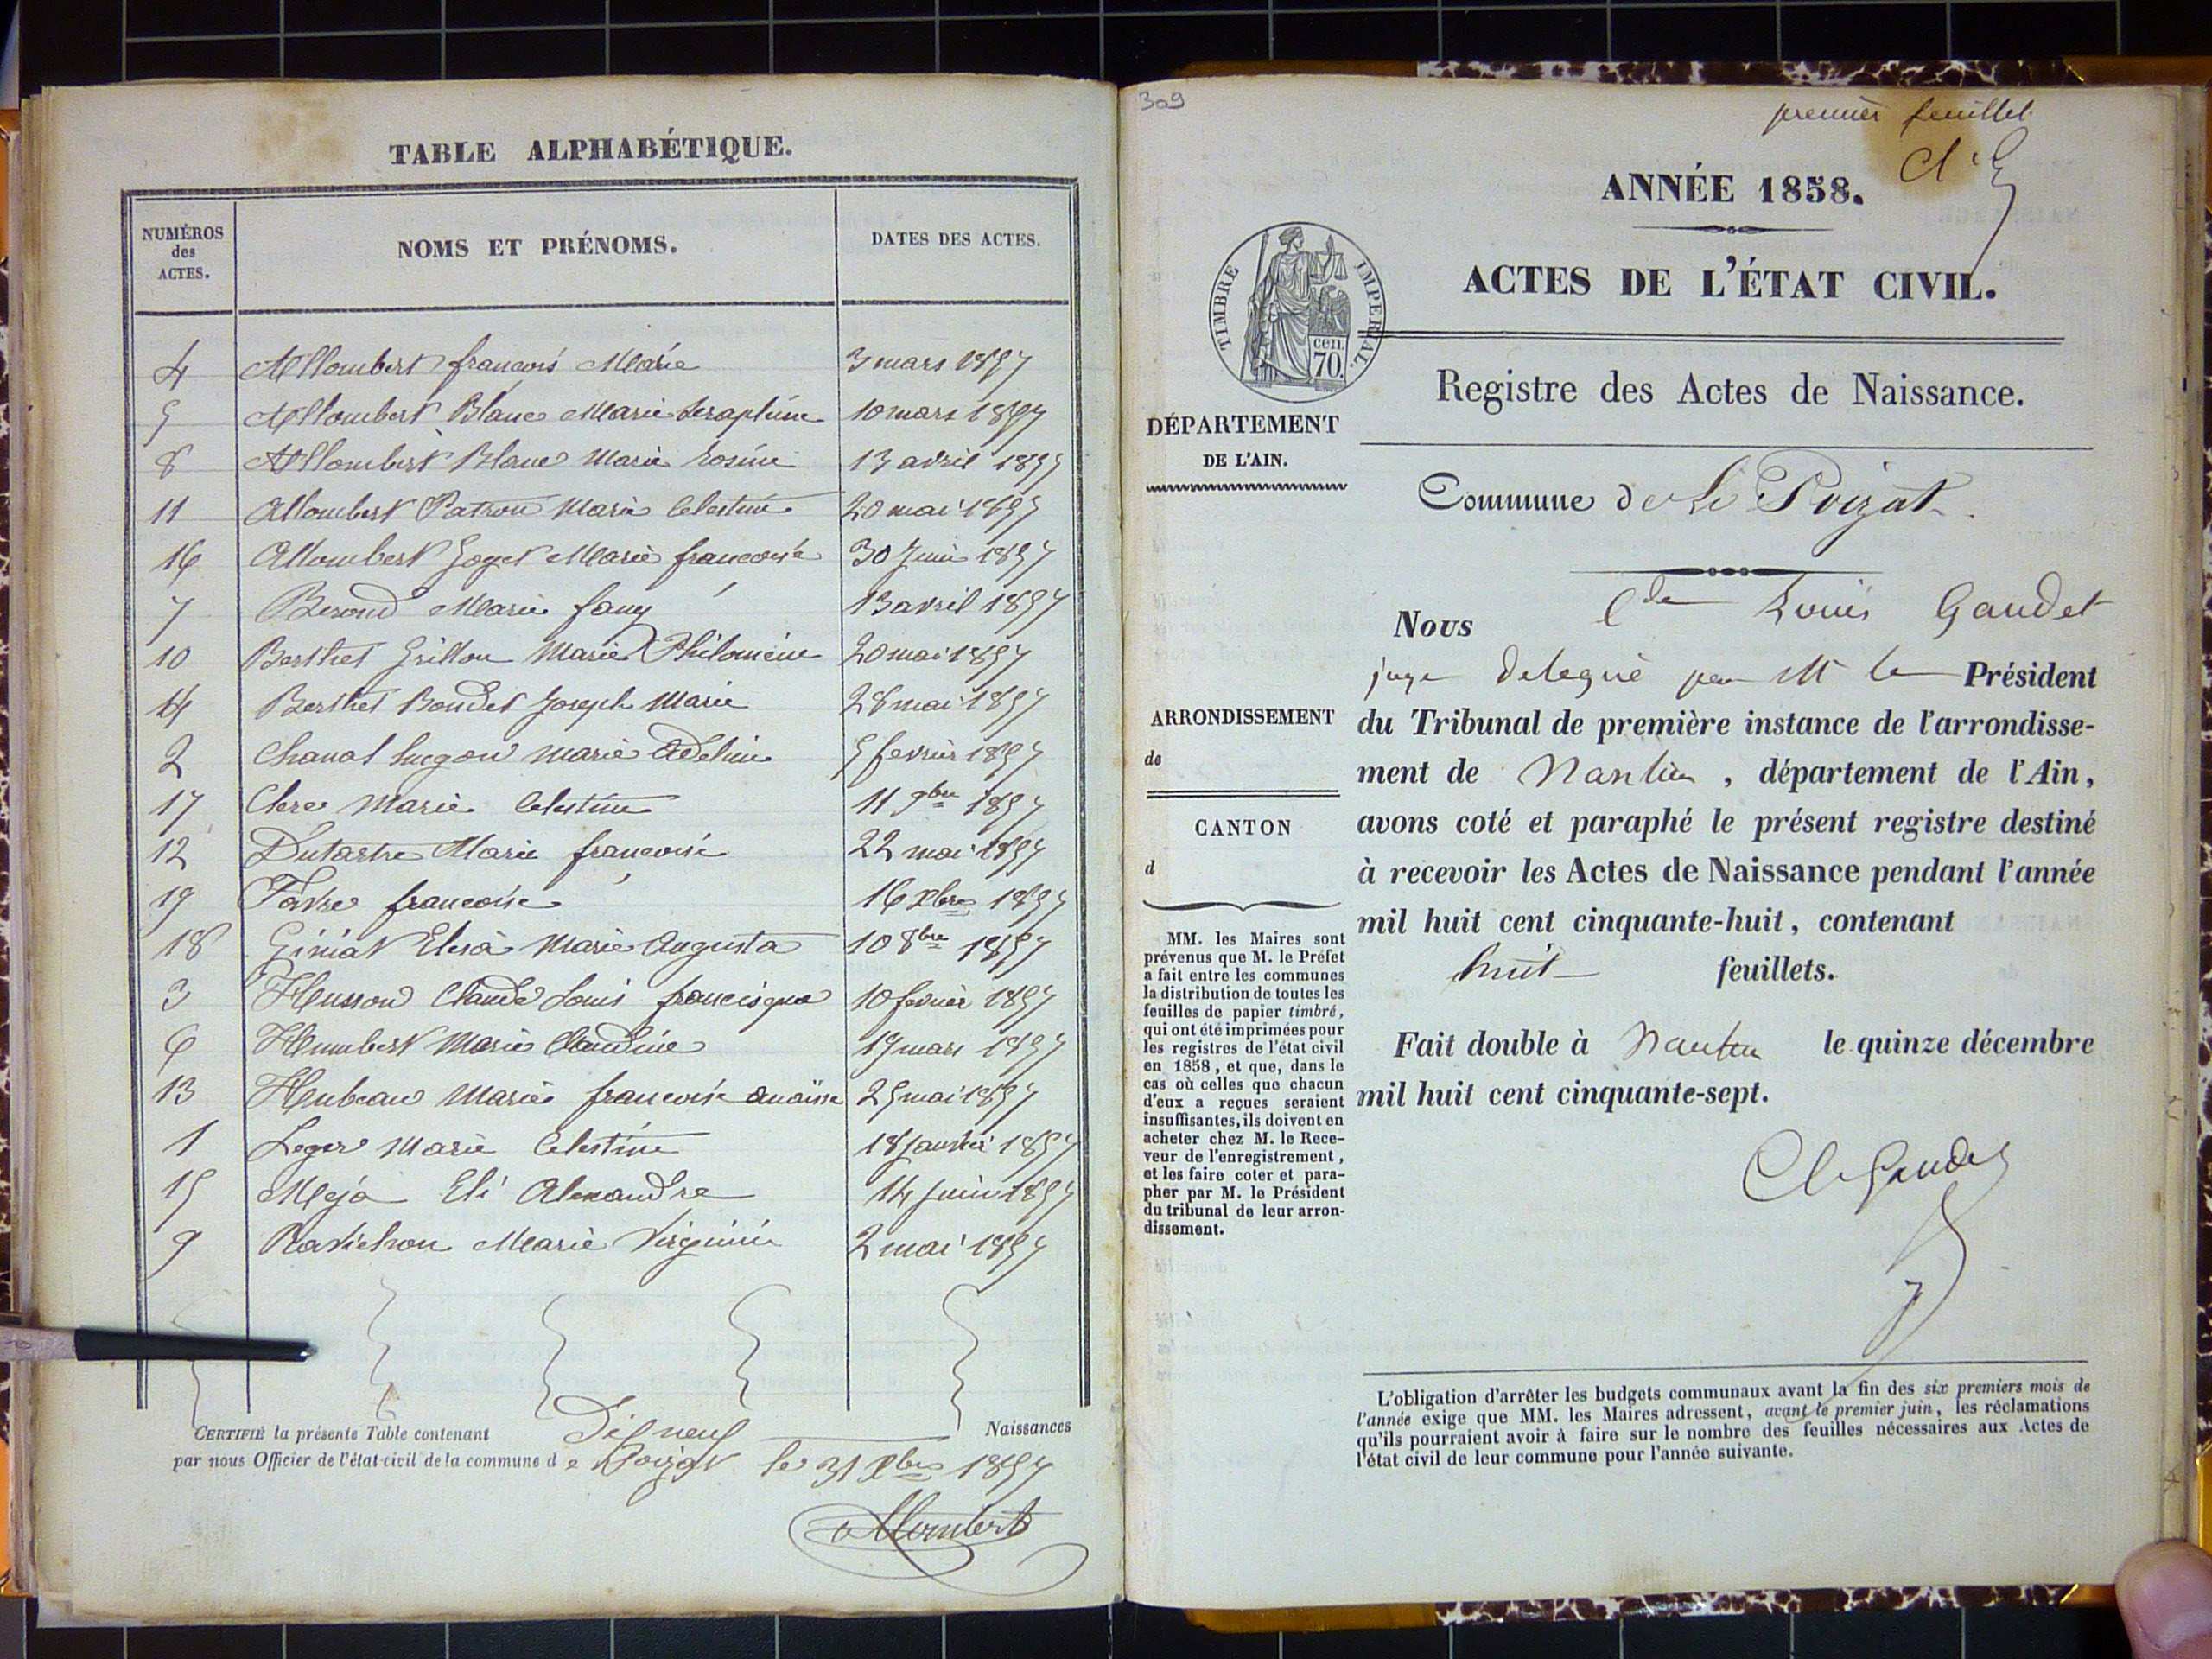 TABLE ALPHABÉTIQUE.
NUMÉROS des ACTES.
NOMS ET PRÉNOMS.
DATES DES ACTES.
4 Allombert françois Marie 3 mars 1857
5 Allombert Blanc Marie Seraphine 10 mars 1857
8 Allombert Blanc Marie rosine 13 avril 1857
11 Allombert Patron Marie Celestine 20 mai 1857
16 Allombert Goget Marie françoise 30 Juin 1857
7 Beroud Marie fany 13 avril 1857
10 Berthet Grillon Marie Philomène 20 mai 1857
14 Berthet Bondet Joseph Marie 28 mai 1857
2 Chanal hugon marie Adeline 5 fevrier 1857
17 Clerc Marie Celestine 11 9bre 1857
12 Dutartre Marie françoise 22 mai 1857
19 Favre françoise 16 Xbre 1857
18 Giniat Marie Augusta 10 8bre 1857
3 Husson Claude Louis francisque 10 fevrier 1857
6 Humbert Marie Claudine 19 mars 1857
13 Hubeau Marie françoise anaïsse 25 mai 1857
1 Leger Marie Celestine 18 Janvier 1857
15 Meja Eli Alexandre 14 Juin 1857
9 Ravichon Marie Virginie 2 mai 1857
CERTIFIÉ la présente Table contenant Dix neuf Naissances
par nous Officier de l'état-civil de la commune de Poizat le 31 Xbre 1857
Allombert
309
premier feuillet
ANNÉE 1858.
ACTES DE L'ÉTAT CIVIL.
TIMBRE IMPERIAL.
CEN. 70.
Registre des Actes de Naissance.
DÉPARTEMENT
DE L'AIN.
Commune de Le Poizat
ARRONDISSEMENT
de
CANTON
d
MM. les Maires sont
prévenus que M. le Préfet
a fait entre les communes
la distribution de toutes les
feuilles de papier timbré,
qui ont été imprimées pour
les registres de l'état civil
en 1858, et que, dans le
cas où celles que chacun
d'eux a reçues seraient
insuffisantes, ils doivent en
acheter chez M. le Rece-
veur de l'enregistrement,
et les faire coter et para-
pher par M. le Président
du tribunal de leur arron-
dissement.
Nous Cde Louis Gaudet
juge délegué par M le Président
du Tribunal de première instance de l'arrondisse-
ment de Nantua, département de l'Ain,
avons coté et paraphé le présent registre destiné
à recevoir les Actes de Naissance pendant l'année
mil huit cent cinquante-huit, contenant
huit feuillets.
Fait double à Nantua le quinze décembre
mil huit cent cinquante-sept.
Cl Gaudet
L'obligation d'arrêter les budgets communaux avant la fin des six premiers mois de
l'année exige que MM. les Maires adressent, avant le premier juin, les réclamations
qu'ils pourraient avoir à faire sur le nombre des feuilles nécessaires aux Actes de
l'état civil de leur commune pour l'année suivante.